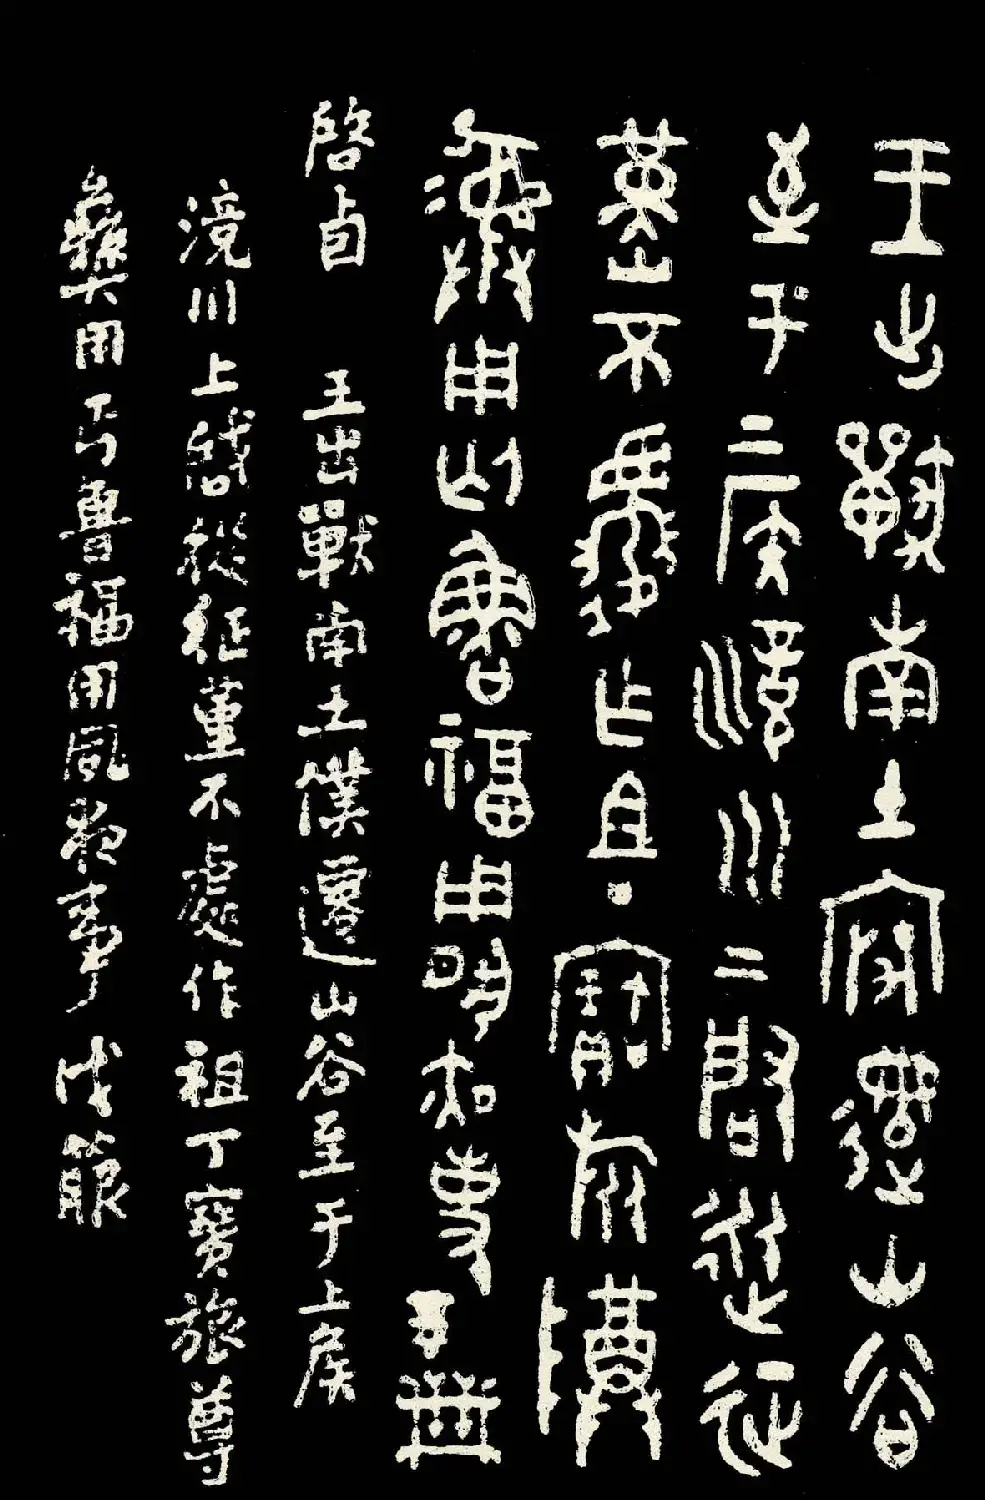 王出獸南土山谷
至于上侯滰川上啓從征
堇不乍且丁寶旅尊
彝用匄魯福用夙夜事戉箙
啓卣 王出獸南土僕遷山谷至于上侯
滰川上啓從征堇不處作祖丁寶旅尊
彝用丐魯福用夙夜事 戉箙